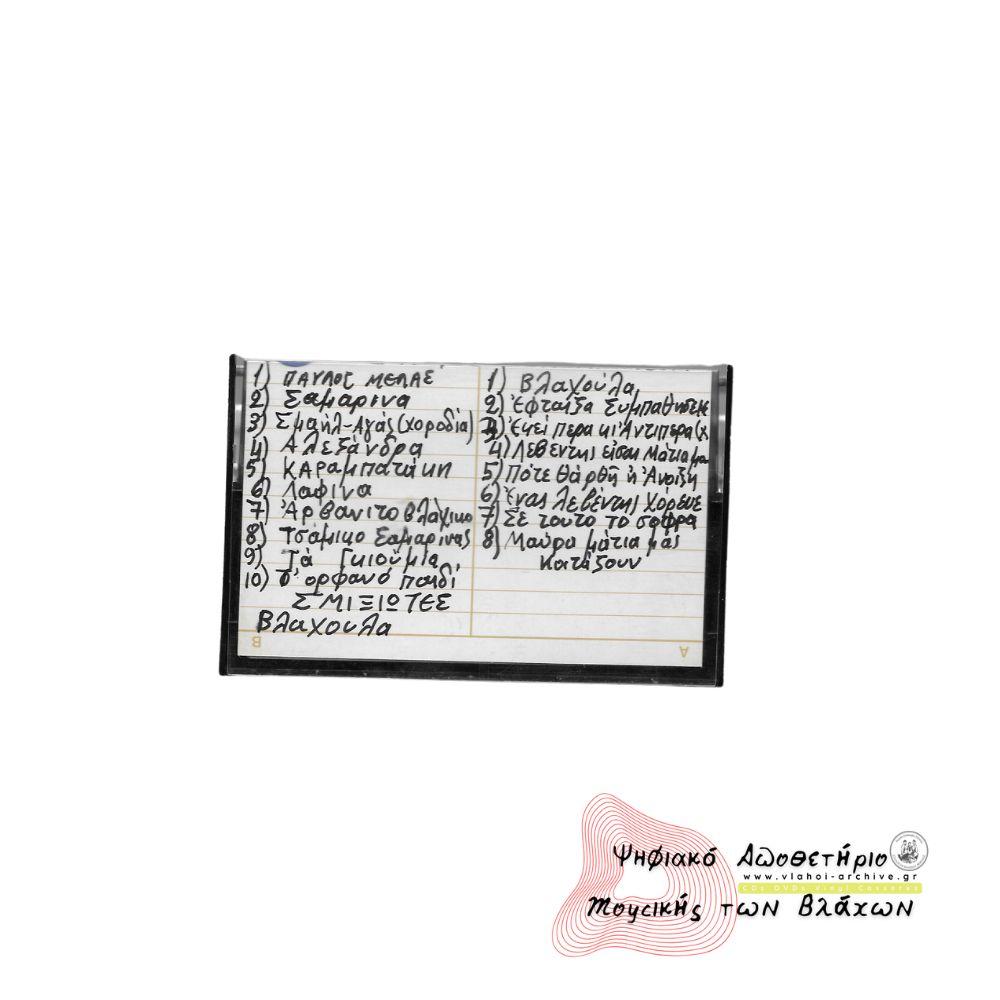 1) ΠΑΥΛΟΣ ΜΕΛΑΣ
2) Σαμαρινα
3) Σμαήλ-Αγάς (χορωδία)
4) Αλεξάνδρα
5) ΚΑΡΑΜΠΑΤΑΚΗ
6) Λαφίνα
7) Ἀρβανιτοβλάχικο
8) Τσάμικο Σαμαρινας
9) Τά Γκιούμια
10) Τ' ορφανό παιδί
ΣΜΙΞΙΩΤΕΣ
Βλαχουλα
B
1) Βλαχούλα
2) Ἐφταιξα Συμπαθησετε
3) Ἐκεί περα κι Ἀντιπερα (χ
4) Λεβεντης είσαι μάτια μου
5) Πότε θάρθῆ ἡ Ἀνοιξη
6) Ἐνας λεβέντης χόρευε
7) Σε τουτο το σοφρα
8) Μαύρα μάτια μας
κοιτάζουν
A
Ψηφιακό Αποθετήριο
www.vlahoi-archive.gr
CDs DVDs Vinyl Cassetes
Μουσικής των Βλάχων